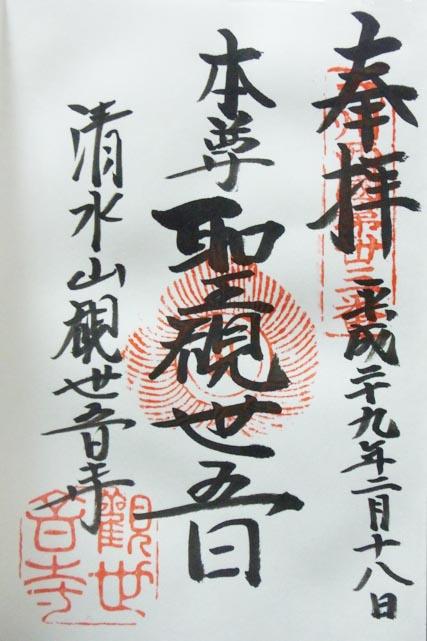 奉拝
平成二十九年二月十八日
本尊
聖観世音
清水山観世音寺
觀世音寺